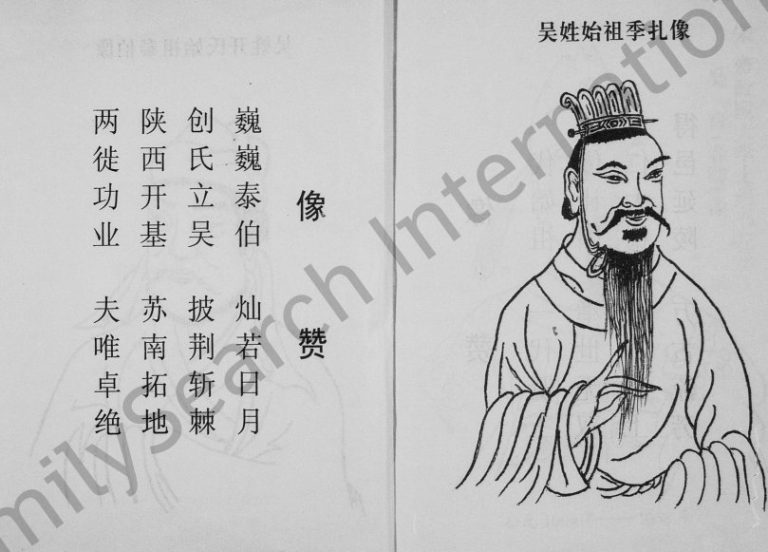 像赞
巍巍泰伯 灿若日月
创氏立吴 披荆斩棘
陕西开基 苏南拓地
两徙功业 夫唯卓绝
吴姓始祖季扎像
milySearch Internation